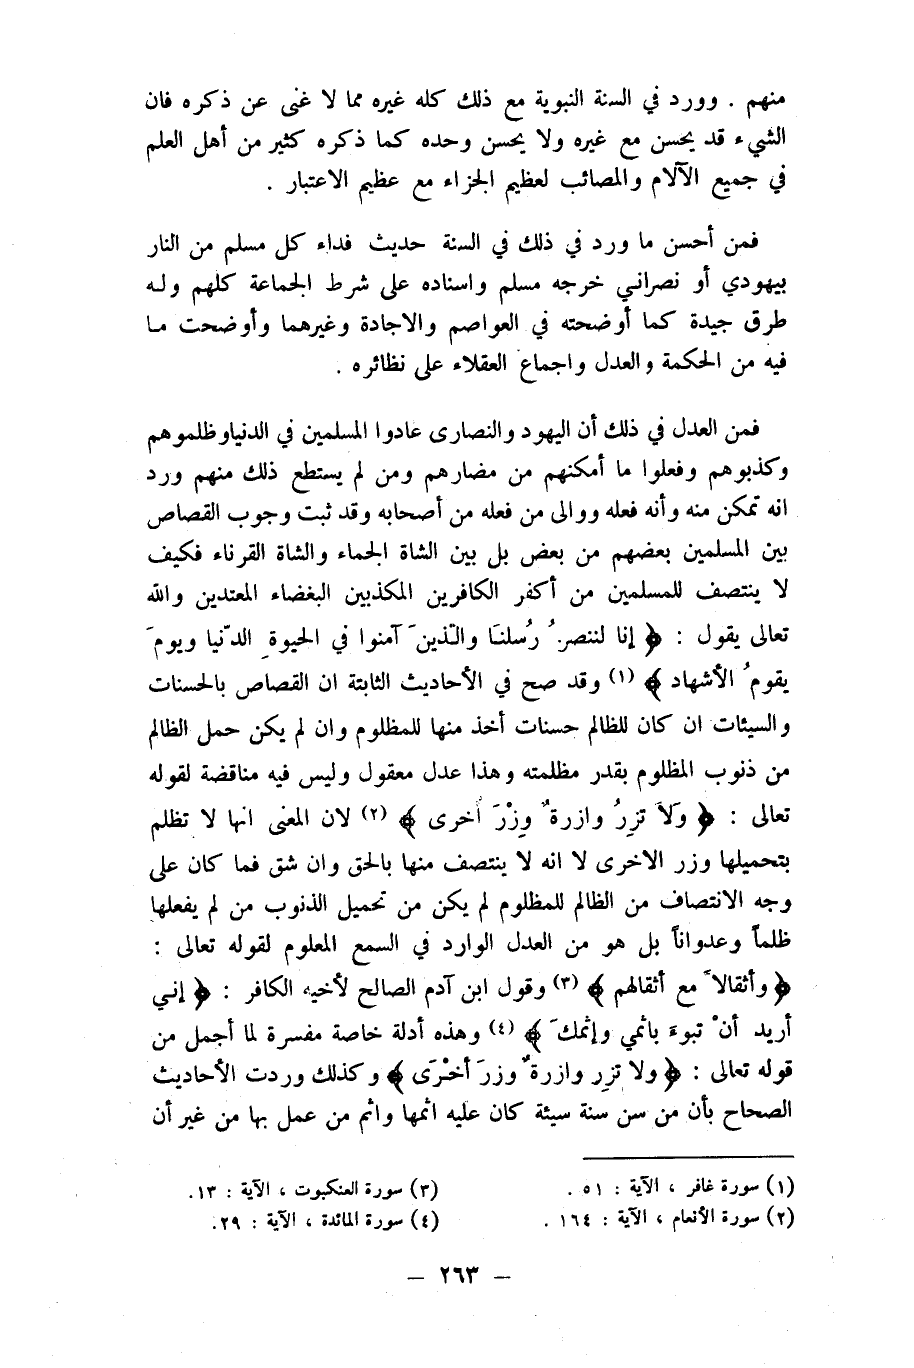 منهم . وورد في السنة النبوية مع ذلك كله غيره مما لا غنى عن ذكره فان
الشيء قد يحسن مع غيره ولا يحسن وحده كما ذكره كثير من أهل العلم
في جميع الآلام والمصائب لعظيم الجزاء مع عظيم الاعتبار .
فمن أحسن ما ورد في ذلك في السنة حديث فداء كل مسلم من النار
بيهودي أو نصراني خرجه مسلم واسناده على شرط الجماعة كلهم وله
طرق جيدة كما أوضحته في العواصم والاجادة وغيرهما وأوضحت ما
فيه من الحكمة والعدل واجماع العقلاء على نظائره .
فمن العدل في ذلك أن اليهود والنصارى عادوا المسلمين في الدنيا وظلموهم
وكذبوهم وفعلوا ما أمكنهم من مضارهم ومن لم يستطع ذلك منهم ورد
انه تمكن منه وأنه فعله ووالى من فعله من أصحابه وقد ثبت وجوب القصاص
بين المسلمين بعضهم من بعض بل بين الشاة الجماء والشاة القرناء فكيف
لا ينتصف للمسلمين من أكفر الكافرين المكذبين البغضاء المعتدين والله
تعالى يقول : ﴿ إنا لننصرُ رُسلنَا والّذينَ آمنوا في الحيوةِ الدّنيا ويومَ
يقومُ الأشهاد ﴾ (١) وقد صح في الأحاديث الثابتة ان القصاص بالحسنات
والسيئات ان كان للظالم حسنات أخذ منها للمظلوم وان لم يكن حمل الظالم
من ذنوب المظلوم بقدر مظلمته وهذا عدل معقول وليس فيه مناقضة لقوله
تعالى : ﴿ وَلَا تزِرُ وازرةٌ وِزْرَ أخرى ﴾ (٢) لان المعنى انها لا تظلم
بتحميلها وزر الاخرى لا انه لا ينتصف منها بالحق وان شق فما كان على
وجه الانتصاف من الظالم للمظلوم لم يكن من تحميل الذنوب من لم يفعلها
ظلماً وعدواناً بل هو من العدل الوارد في السمع المعلوم لقوله تعالى :
﴿ وأثقالاً مع أثقالهم ﴾ (٣) وقول ابن آدم الصالح لأخيه الكافر : ﴿ إني
أريد أنْ تبوءَ باثمي وإثمكَ ﴾ (٤) وهذه أدلة خاصة مفسرة لما أجمل من
قوله تعالى : ﴿ ولا تزِر وازرةٌ وزرَ أخْرَى ﴾ وكذلك وردت الأحاديث
الصحاح بأن من سن سنة سيئة كان عليه اثمها واثم من عمل بها من غير أن
(١) سورة غافر ، الآية : ٥١ .
(٢) سورة الأنعام ، الآية : ١٦٤ .
(٣) سورة العنكبوت ، الآية : ١٣.
(٤) سورة المائدة ، الآية : ٢٩.
– ٢٦٣ –